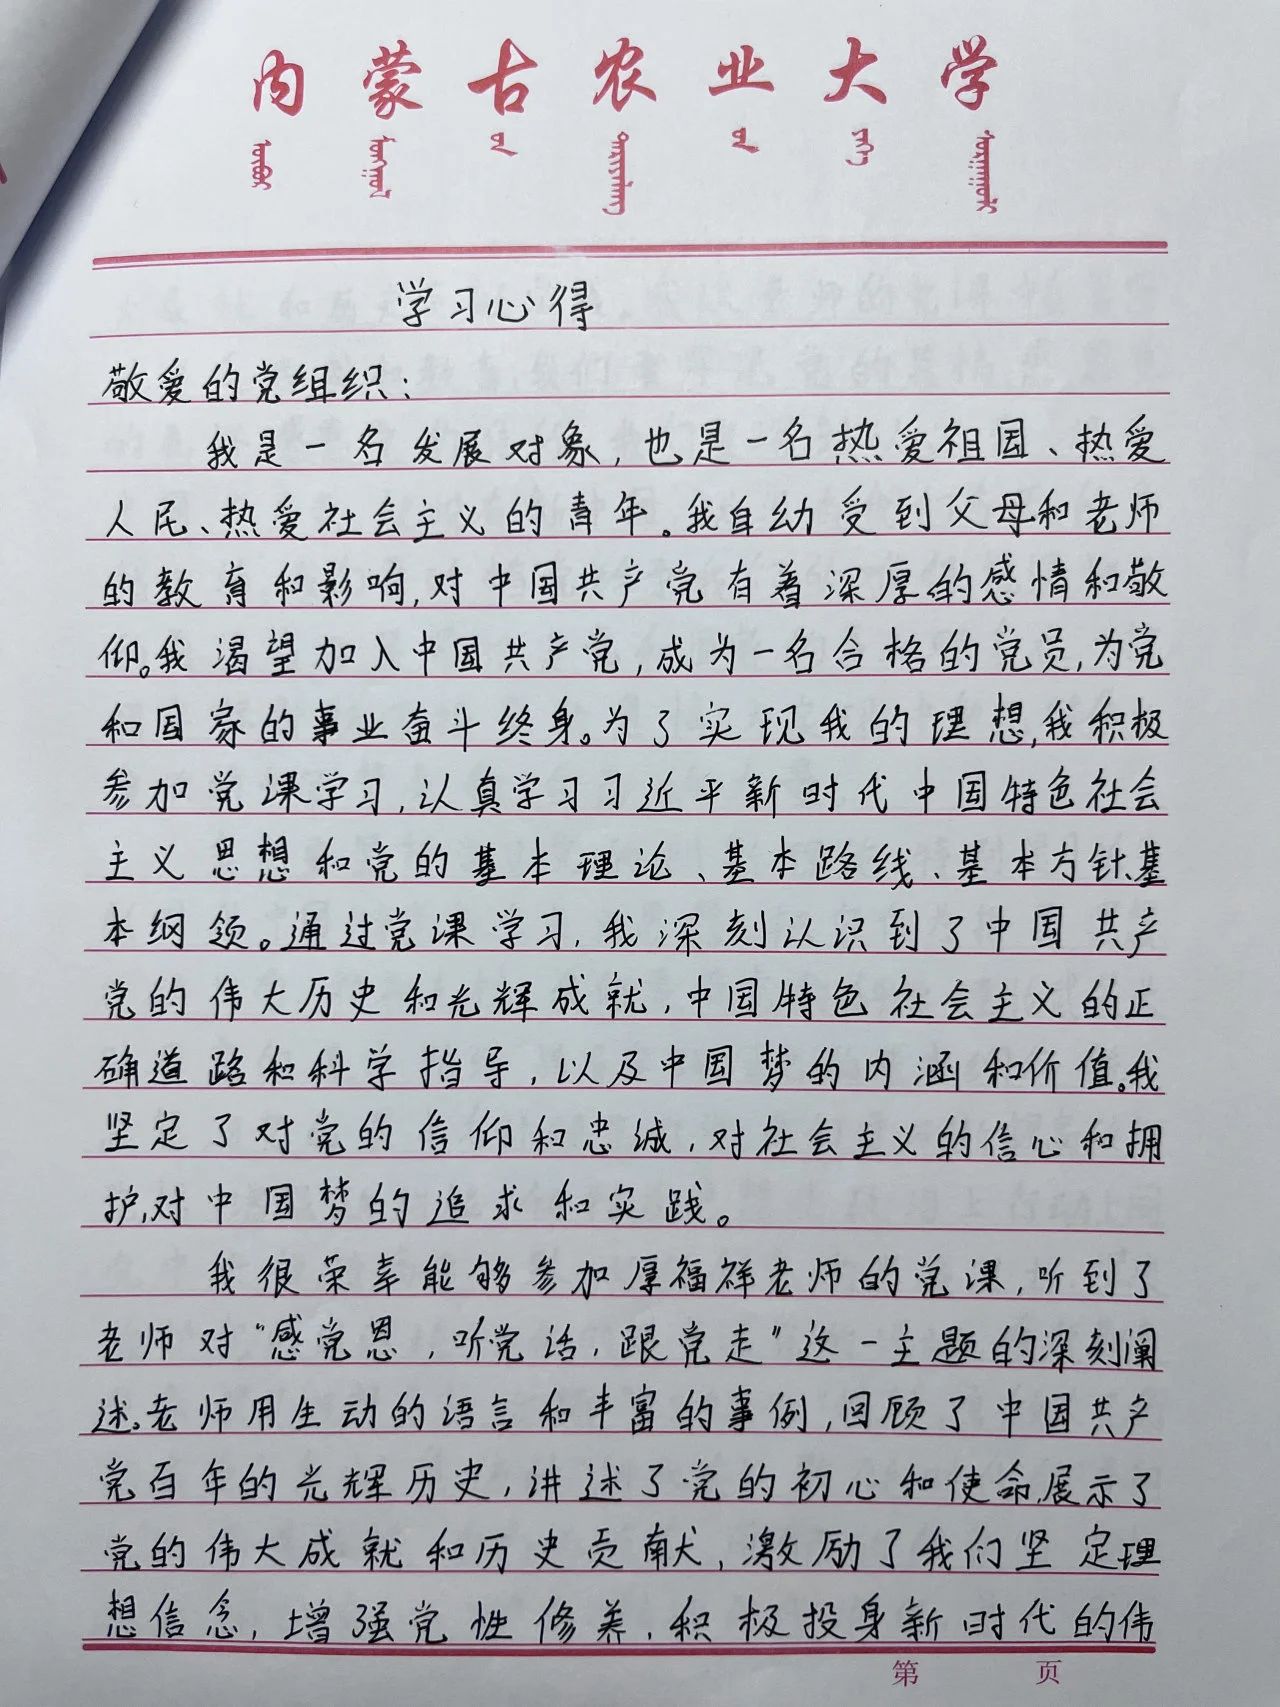 内蒙古农业大学
学习心得
敬爱的党组织：
我是一名发展对象，也是一名热爱祖国、热爱
人民、热爱社会主义的青年。我自幼受到父母和老师
的教育和影响，对中国共产党有着深厚的感情和敬
仰。我渴望加入中国共产党，成为一名合格的党员，为党
和国家的事业奋斗终身。为了实现我的理想，我积极
参加党课学习，认真学习习近平新时代中国特色社会
主义思想和党的基本理论、基本路线、基本方针、基
本纲领。通过党课学习，我深刻认识到了中国共产
党的伟大历史和光辉成就，中国特色社会主义的正
确道路和科学指导，以及中国梦的内涵和价值。我
坚定了对党的信仰和忠诚，对社会主义的信心和拥
护，对中国梦的追求和实践。
我很荣幸能够参加厚福祥老师的党课，听到了
老师对“感党恩，听党话，跟党走”这一主题的深刻阐
述。老师用生动的语言和丰富的事例，回顾了中国共产
党百年的光辉历史，讲述了党的初心和使命，展示了
党的伟大成就和历史贡献，激励了我们坚定理
想信念，增强党性修养，积极投身新时代的伟
第 页